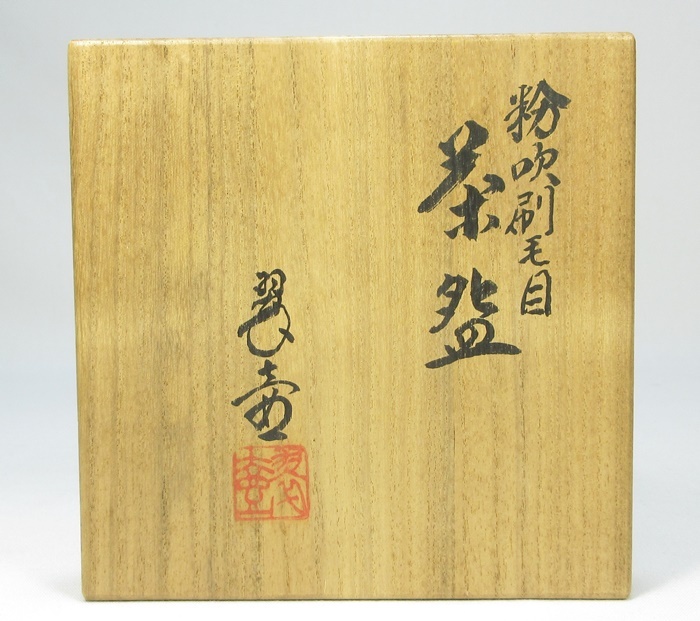 粉吹刷毛目
茶盌
翠壺
翠壺